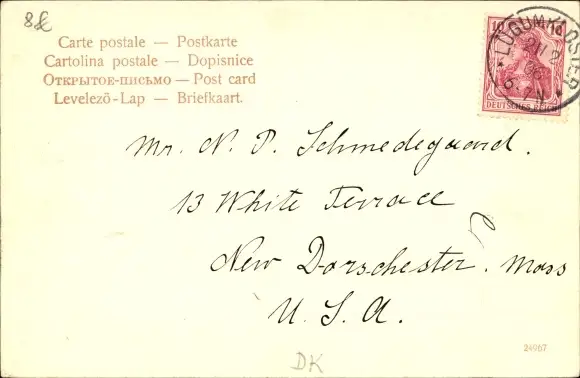 Carte postale — Postkarte
Cartolina postale — Dopisnice
Открытое-письмо — Post card
Levelező-Lap — Briefkaart.
10
LÜGUMKLOSTER
DEUTSCHES REICH
Mr. N. P. Schmedegaard.
13 White Terrace
New Dorschester. Mass
U. S. A.
24967
DK